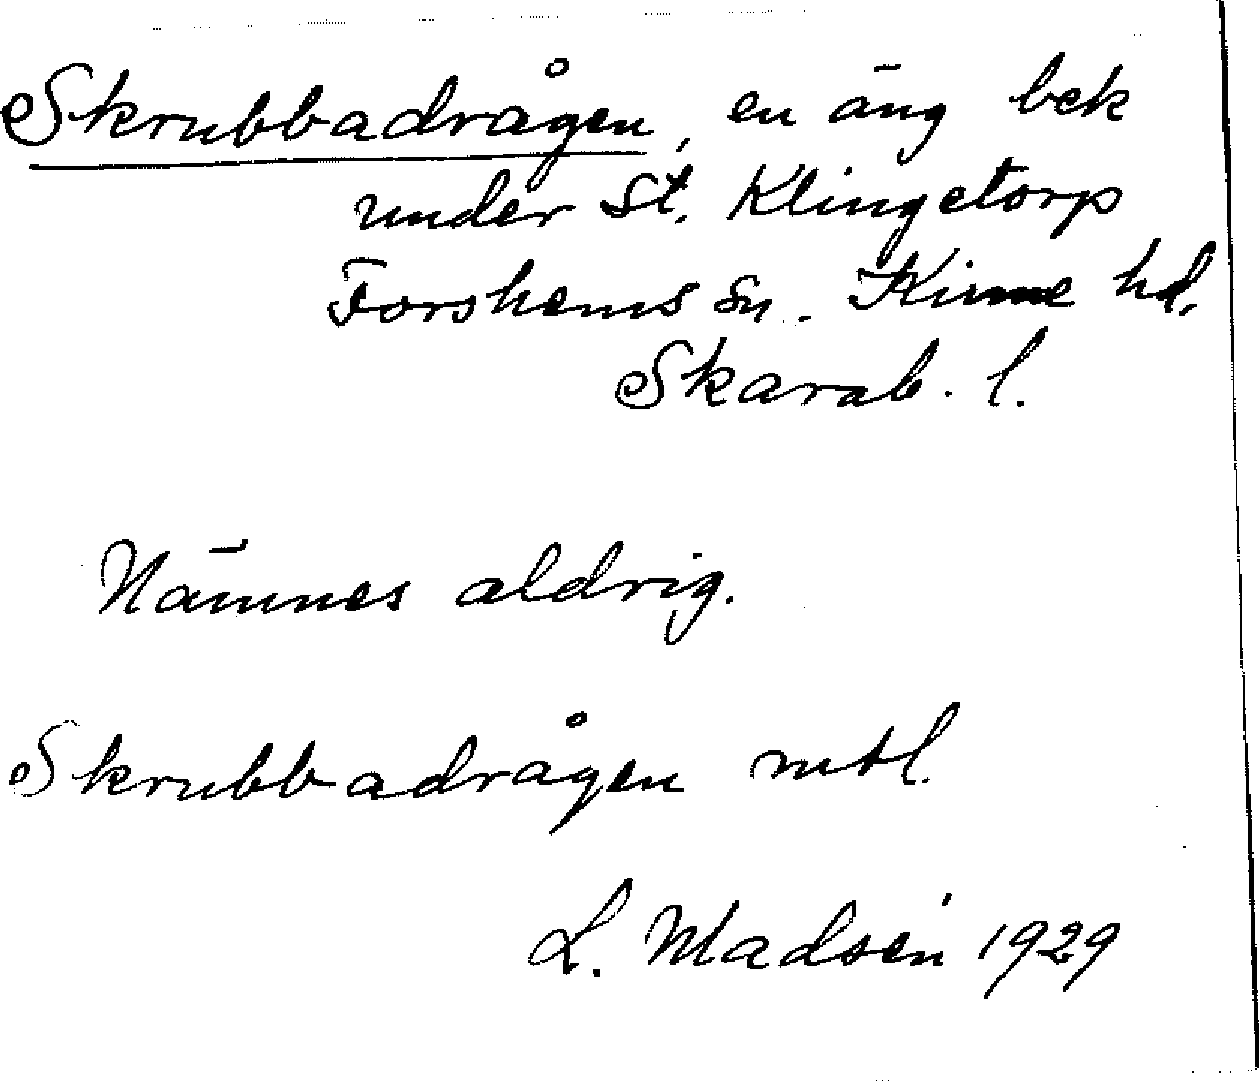 Skrubbadrågen, en äng bek
under St. Klingetorp
Forshems sn. Kinne hd.
Skarab. l.
Nämnes aldrig.
Skrubbadrågen mtl.
L. Madsén 1929